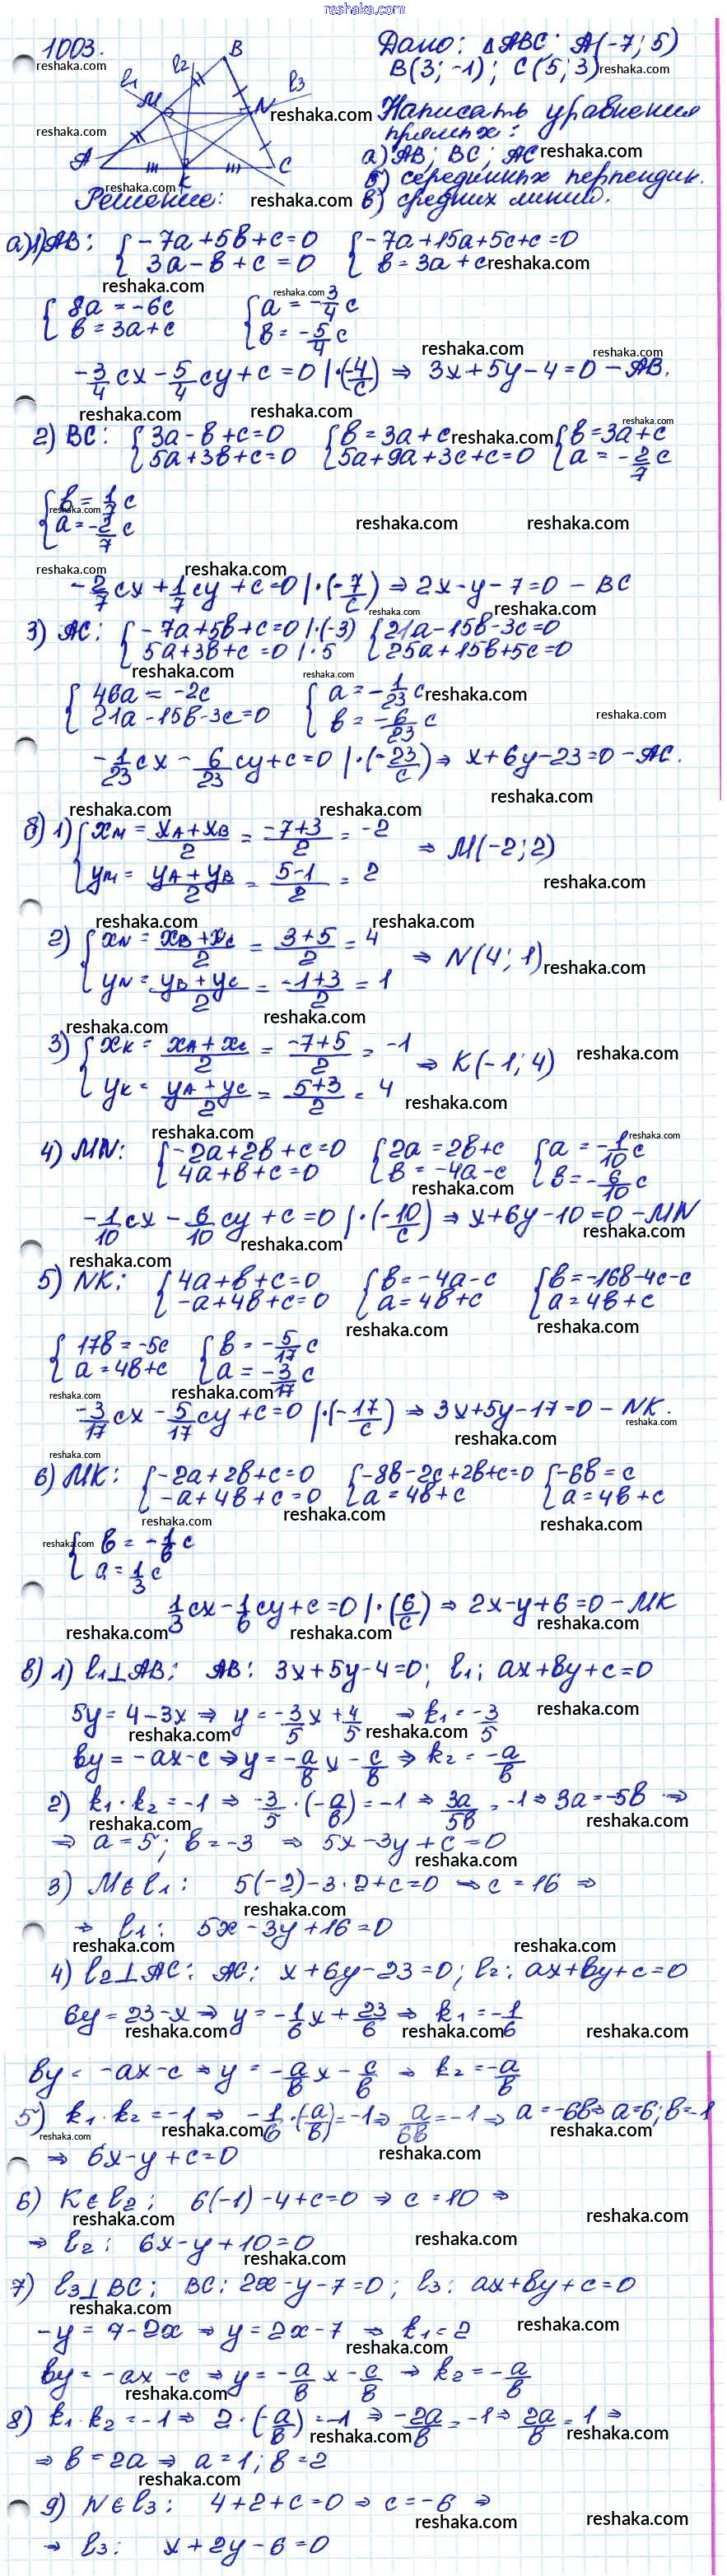 reshaka.com
1003.
Дано: △ABC; A(-7; 5)
B(3; -1); C(5; 3)
Написать уравнения
прямых:
а) AB; BC; AC
б) серединных перпендик.
в) средних линий.
l1 l2 l3
A B C M N K
Решение:
а) 1) AB: { -7a+5b+c=0 { -7a+15a+5c+c=0
3a-b+c=0 b=3a+c
{ 8a=-6c { a=-3/4 c
b=3a+c b=-5/4 c
-3/4 cx - 5/4 cy + c = 0 |·(-4/c) ⇒ 3x+5y-4=0 - AB.
2) BC: { 3a-b+c=0 { b=3a+c { b=3a+c
5a+3b+c=0 5a+9a+3c+c=0 a=-2/7 c
{ b=1/7 c
a=-2/7 c
-2/7 cx + 1/7 cy + c=0 |·(-7/c) ⇒ 2x-y-7=0 - BC
3) AC: { -7a+5b+c=0 |·(-3) { 21a-15b-3c=0
5a+3b+c=0 |·5 25a+15b+5c=0
{ 46a=-2c { a=-1/23 c
21a-15b-3c=0 b=-6/23 c
-1/23 cx - 6/23 cy+c=0 |·(-23/c) ⇒ x+6y-23=0 - AC.
б) 1) { xM = (xA+xB)/2 = (-7+3)/2 = -2 ⇒ M(-2; 2)
yM = (yA+yB)/2 = (5-1)/2 = 2
2) { xN = (xB+xC)/2 = (3+5)/2 = 4 ⇒ N(4; 1)
yN = (yB+yC)/2 = (-1+3)/2 = 1
3) { xK = (xA+xC)/2 = (-7+5)/2 = -1 ⇒ K(-1; 4)
yK = (yA+yC)/2 = (5+3)/2 = 4
4) MN: { -2a+2b+c=0 { 2a=2b+c { a=-1/10 c
4a+b+c=0 b=-4a-c b=-6/10 c
-1/10 cx - 6/10 cy + c=0 |·(-10/c) ⇒ x+6y-10=0 - MN
5) NK: { 4a+b+c=0 { b=-4a-c { b=-16b-4c-c
-a+4b+c=0 a=4b+c a=4b+c
{ 17b=-5c { b=-5/17 c
a=4b+c a=-3/17 c
-3/17 cx - 5/17 cy + c=0 |·(-17/c) ⇒ 3x+5y-17=0 - NK.
6) MK: { -2a+2b+c=0 { -8b-2c+2b+c=0 { -6b=c
-a+4b+c=0 a=4b+c a=4b+c
{ b=-1/6 c
a=1/3 c
1/3 cx - 1/6 cy + c=0 |·(6/c) ⇒ 2x-y+6=0 - MK
в) 1) l1⊥AB; AB: 3x+5y-4=0; l1: ax+by+c=0
5y=4-3x ⇒ y=-3/5 x+4/5 ⇒ k1=-3/5
by=-ax-c ⇒ y=-a/b x - c/b ⇒ k2=-a/b
2) k1·k2=-1 ⇒ -3/5·(-a/b)=-1 ⇒ 3a/5b=-1 ⇒ 3a=-5b ⇒
⇒ a=5; b=-3 ⇒ 5x-3y+c=0
3) M∈l1: 5(-2)-3·2+c=0 ⇒ c=16 ⇒
⇒ l1: 5x-3y+16=0
4) l2⊥AC: AC: x+6y-23=0; l2: ax+by+c=0
6y=23-x ⇒ y=-1/6 x+23/6 ⇒ k1=-1/6
by=-ax-c ⇒ y=-a/b x - c/b ⇒ k2=-a/b
5) k1·k2=-1 ⇒ -1/6·(-a/b)=-1 ⇒ a/6b=-1 ⇒ a=-6b ⇒ a=6; b=-1
⇒ 6x-y+c=0
6) K∈l2: 6(-1)-4+c=0 ⇒ c=10 ⇒
⇒ l2: 6x-y+10=0
7) l3⊥BC; BC: 2x-y-7=0; l3: ax+by+c=0
-y=7-2x ⇒ y=2x-7 ⇒ k1=2
by=-ax-c ⇒ y=-a/b x - c/b ⇒ k2=-a/b
8) k1·k2=-1 ⇒ 2·(-a/b)=-1 ⇒ -2a/b=-1 ⇒ 2a/b=1 ⇒
⇒ b=2a ⇒ a=1; b=2
9) N∈l3: 4+2+c=0 ⇒ c=-6 ⇒
⇒ l3: x+2y-6=0